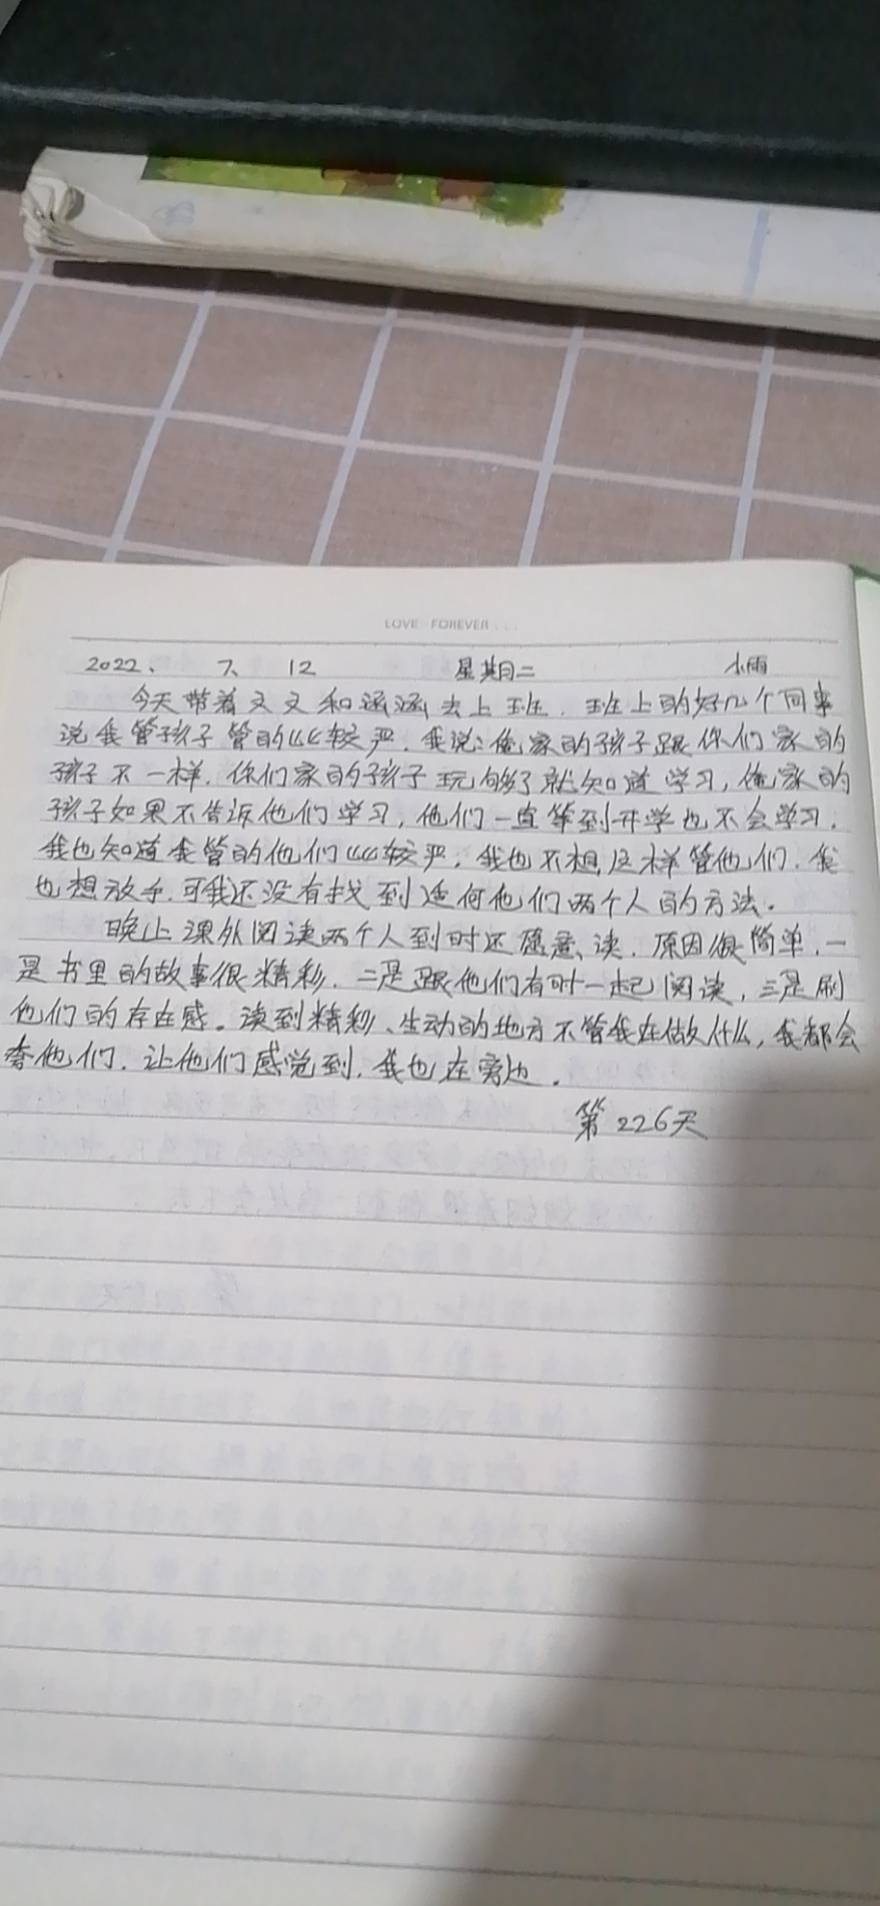 LOVE FOREVER...
2022、 7、 12 星期二 小雨
今天带着文文和涵涵去上班．班上的好几个同事
说我管孩子管的比较严．我说：俺家的孩子跟你们家的
孩子不一样．你们家的孩子玩够了就知道学习，俺家的
孩子如果不告诉他们学习，他们一直等到开学也不会学习．
我也知道我管的他们比较严，我也不想这样管他们．我
也想放手．可我还没有找到适合他们两个人的方法。
晚上课外阅读两个人到时还愿意读．原因很简单．一
是书里的故事很精彩．二是跟他们有时一起阅读，三是刷
他们的存在感。读到精彩、生动的地方不管我在做什么，我都会
夸他们．让他们感觉到．我也在旁边．
第226天